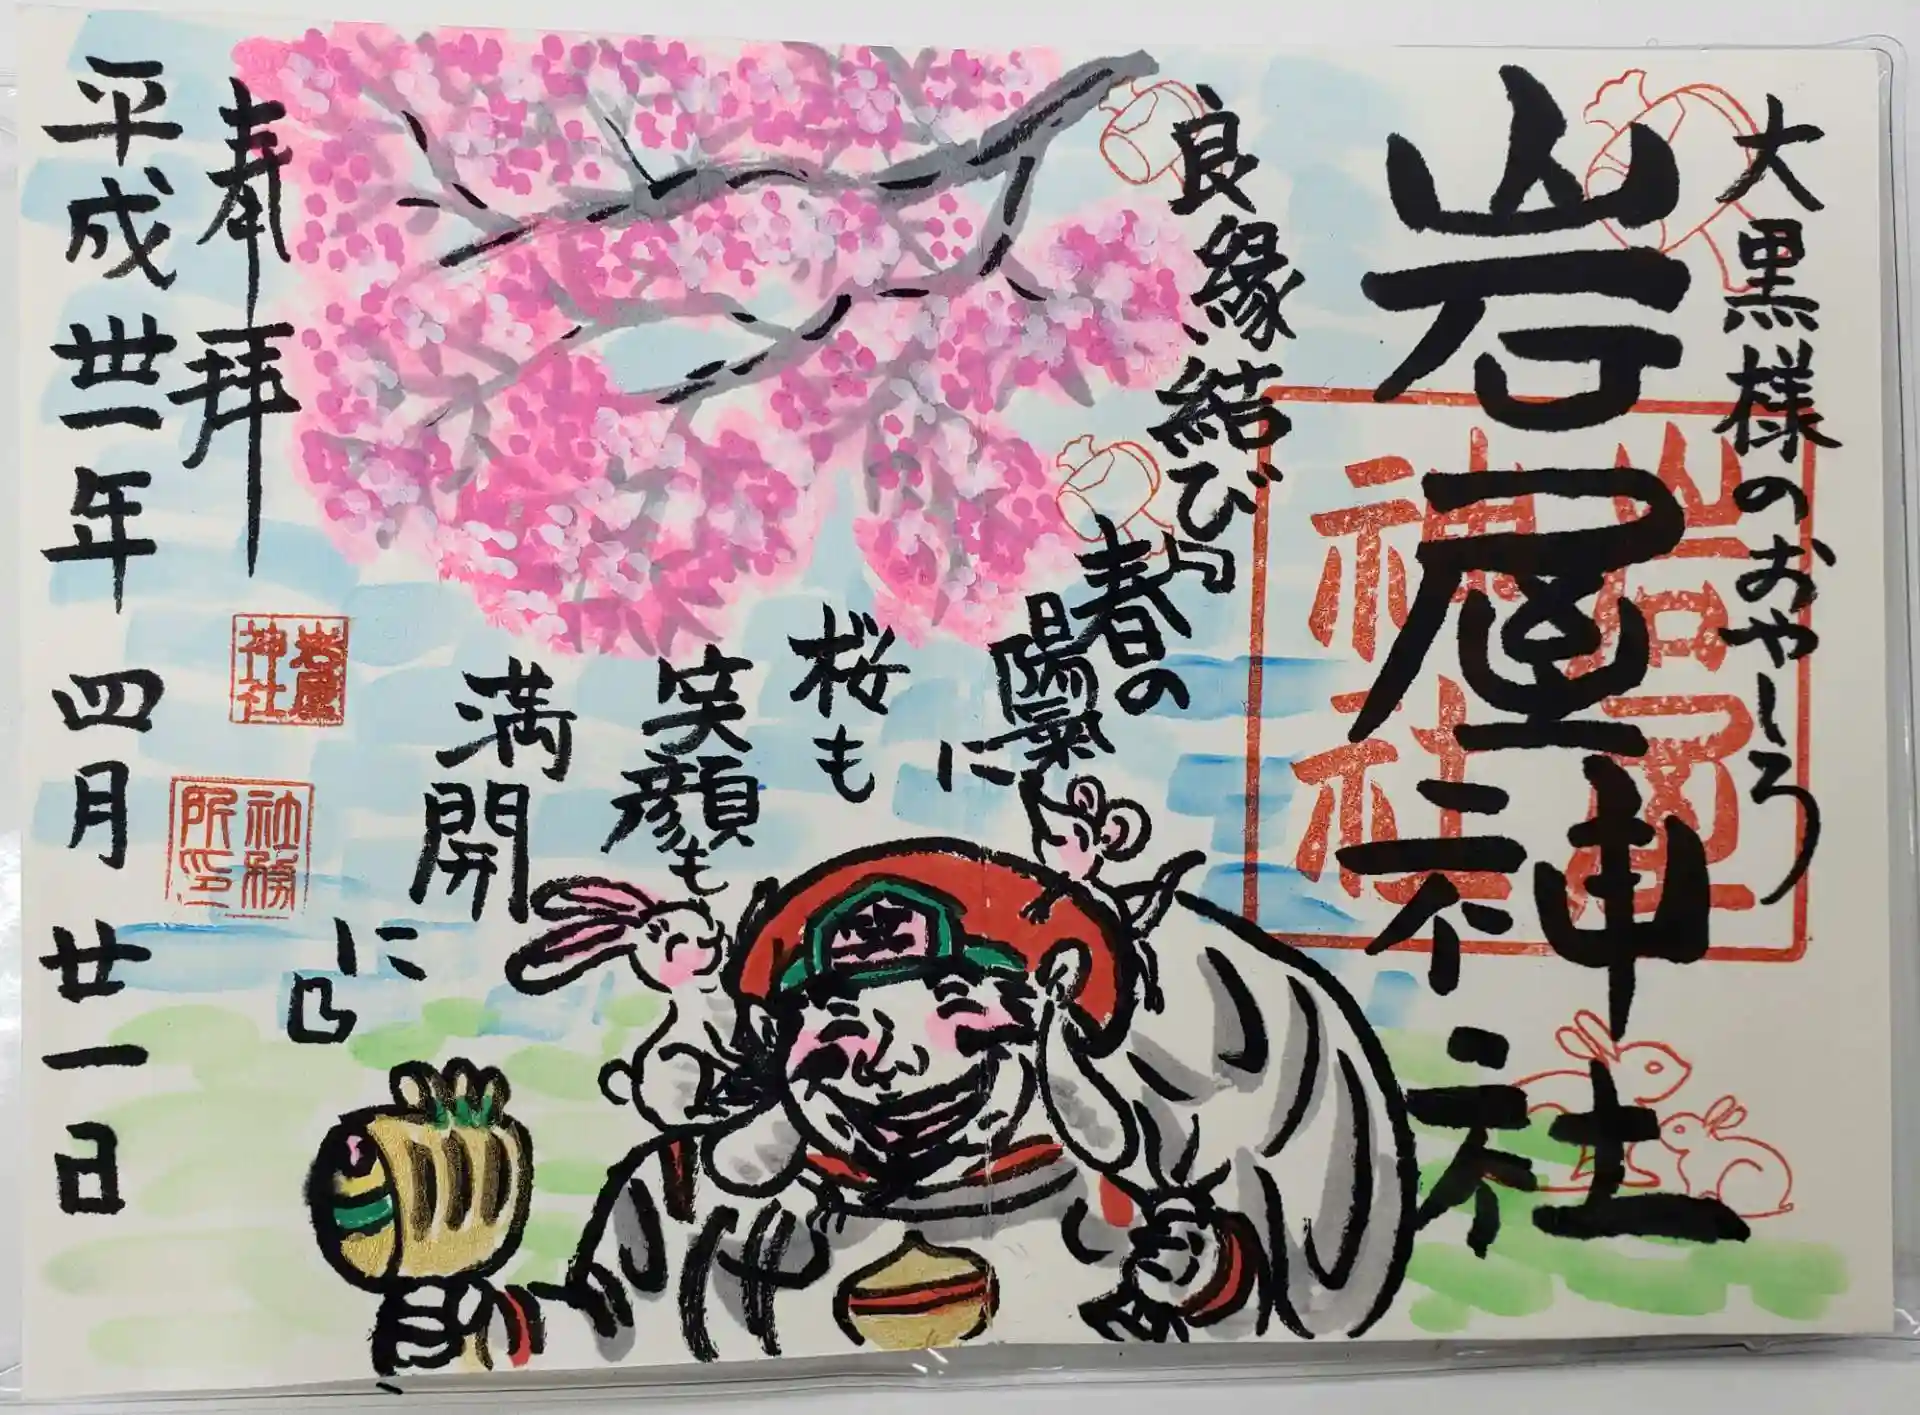 大黒様のおやしろ
岩屋神社
岩屋
神社
良縁結び
春の
陽氣に
桜も
笑顔も
満開
に
奉拝
岩屋
神社
社務
所印
平成卅一年 四月 廿一日